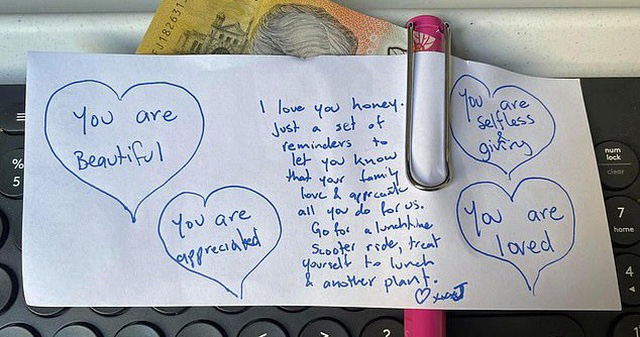 J182631
You are
Beautiful
You are
appreciated
I love you honey.
Just a set of
reminders to
let you know
that your family
love & appreciate
all you do for us.
Go for a lunchtime
scooter ride, treat
yourself to lunch
& another plant.
You are
selfless
&
giving
You are
loved
%
5
num
lock
clear
7
home
4
?